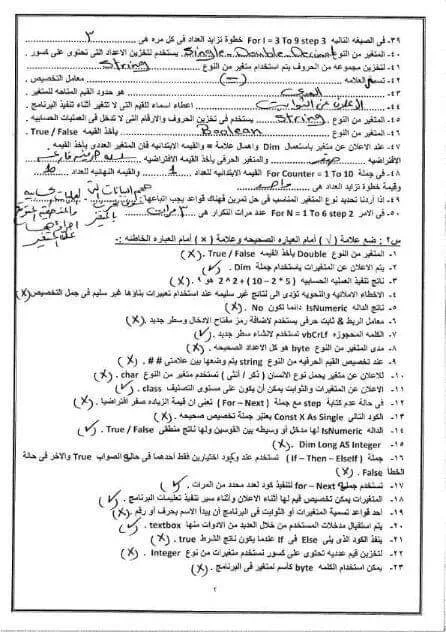 ٣٩- فى الصيغه التاليه For I = 3 To 9 step 3 خطوة تزايد العداد فى كل مره هى ٣
٤٠- المتغير من النوع Single - Double - Decimal يستخدم لتخزين الاعداد التى تحتوى على كسور .
٤١- لتخزين مجموعه من الحروف يتم استخدام متغير من النوع String
٤٢- تسمى العلامه (=) معامل التخصيص .
٤٣- المدى هو حدود القيم المتاحه للمتغير .
٤٤- الاعلان عن الثوابت اعطاء اسماء للقيم التى لا تتغير أثناء تنفيذ البرنامج .
٤٥- المتغير من النوع String يستخدم فى تخزين الحروف والارقام التى لا تدخل فى العمليات الحسابيه .
٤٦- المتغير من النوع Boolean يأخذ القيمه True / False .
٤٧- عند الاعلان عن متغير باستعمال Dim واهمال علامة = والقيمه الابتدائيه فان المتغير العددى يأخذ القيمه
الافتراضيه صفر والمتغير الحرفى يأخذ القيمه الافتراضيه
٤٨- فى جملة For Counter = 1 To 10 القيمه الابتدائيه للعداد 1 والقيمه النهائيه للعداد 10
وقيمة خطوة تزايد العداد هى واحد
٤٩- إذا أردنا تحديد نوع المتغير المناسب فى حل تمرين فهناك قواعد يجب اتباعها
٥٠- فى الامر For N = 1 To 6 step 2 عدد مرات التكرار هى ٣ مرات
س٢ : ضع علامة ( √ ) أمام العباره الصحيحه وعلامة ( × ) أمام العباره الخاطئه :-
١- المتغير من النوع Double يأخذ القيمه True / False . (×)
٢- يتم الاعلان عن المتغيرات باستخدام جملة Dim . (√)
٣- ناتج تنفيذ العمليه الحسابيه 2 ^ 2 + (10 – 2 * 5) هو ٢ . (×)
٤- الاخطاء الاملائيه والنحويه تؤدى الى نتائج غير سليمه عند استخدام تعبيرات بناؤها غير سليم فى جمل التخصيص (×)
٥- ناتج الداله IsNumeric دائما يكون No . (×)
٦- معامل الربط & ثابت حرفى يستخدم لاضافة رمز مفتاح الادخال وسطر جديد . (×)
٧- الكلمه المحجوزه vbCrLf تستخدم لانشاء سطر جديد . (√)
٨- مدى المتغير من النوع byte هو كل الاعداد الصحيحه . (×)
٩- عند تخصيص القيم الحرفيه من النوع string يتم وضعها بين علامتى # # . (×)
١٠- للاعلان عن متغير يحمل نوع الانسان ( ذكر / أنثى ) نستخدم متغير من النوع char . (×)
١١- الاعلان عن المتغيرات والثوابت يمكن أن يكون على مستوى التصنيف class . (√)
١٢- فى حالة عدم كتابة step مع جملة ( For – Next ) تعنى ان قيمة الزياده صفر افتراضيا . (×)
١٣- الكود التالى Const X As Single يعتبر جملة تخصيص صحيحه . (×)
١٤- الداله IsNumeric لها مدخل أو وسيطه بين القوسين ولها ناتج منطقى True / False . (√)
١٥- Dim Long AS Integer . (×)
١٦- جملة ( If – Then – ElseIf ) تستخدم عند وجود اختيارين فقط أحدهما فى حالة الصواب True والاخر فى حالة
الخطأ False . (×)
١٧- تستخدم جملة for – Next لتنفيذ كود لعدد محدد من المرات . (√)
١٨- المتغيرات يمكن تخصيص قيم لها أثناء الاعلان وأثناء سير تنفيذ تعليمات البرنامج . (√)
١٩- احد قواعد تسمية المتغيرات أو الثوابت فى البرنامج أن يبدأ الاسم بحرف أو رقم . (×)
٢٠- يتم استقبال مدخلات المستخدم من خلال العديد من الادوات منها textbox . (√)
٢١- ينفذ الكود الذى يلى Else فى If عندما يكون ناتج الشرط true . (×)
٢٢- لتخزين قيم عدديه تحتوى على كسور نستخدم متغيرات من نوع Integer . (×)
٢٣- يمكن استخدام الكلمه byte كأسم لمتغير فى البرنامج . (×)
٢